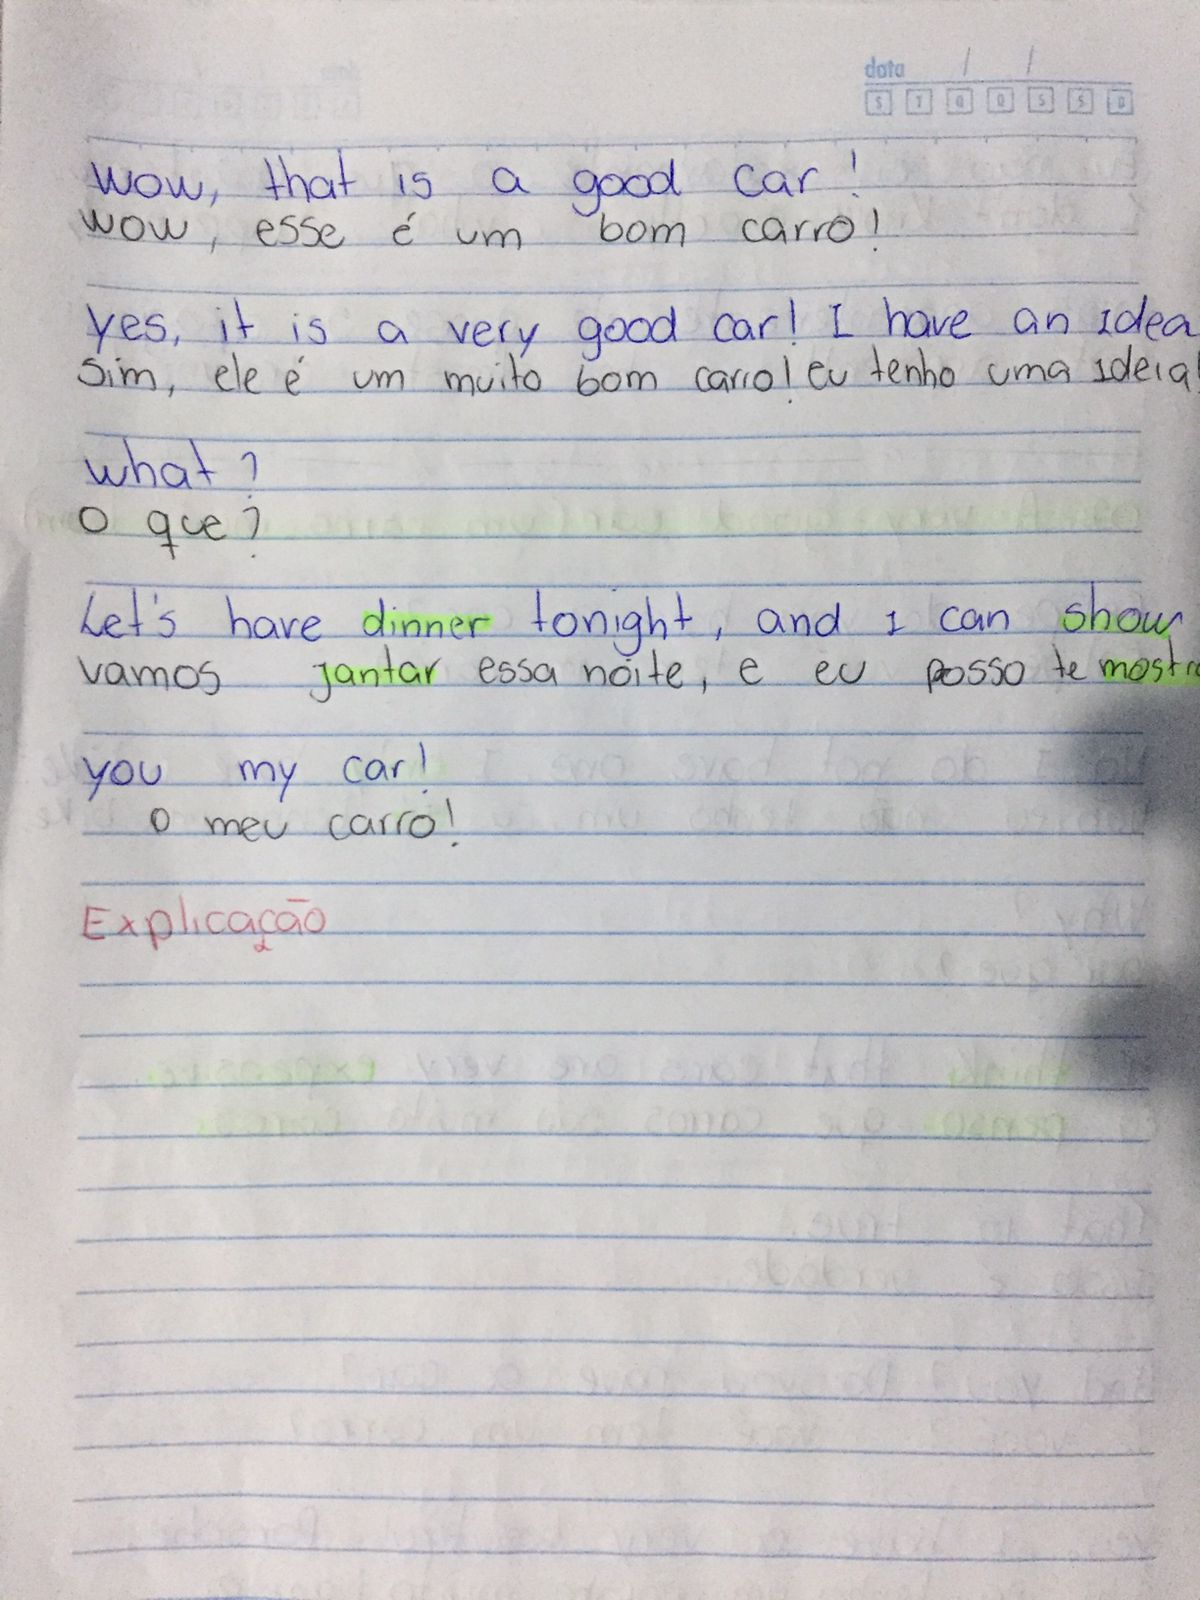 data / /
S T Q Q S S D
Wow, that is a good car!
Wow, esse é um bom carro!
Yes, it is a very good car! I have an idea
Sim, ele é um muito bom carro! eu tenho uma ideia!
what?
O que?
Let's have dinner tonight, and I can show
vamos jantar essa noite, e eu posso te mostra
you my car!
o meu carro!
Explicação